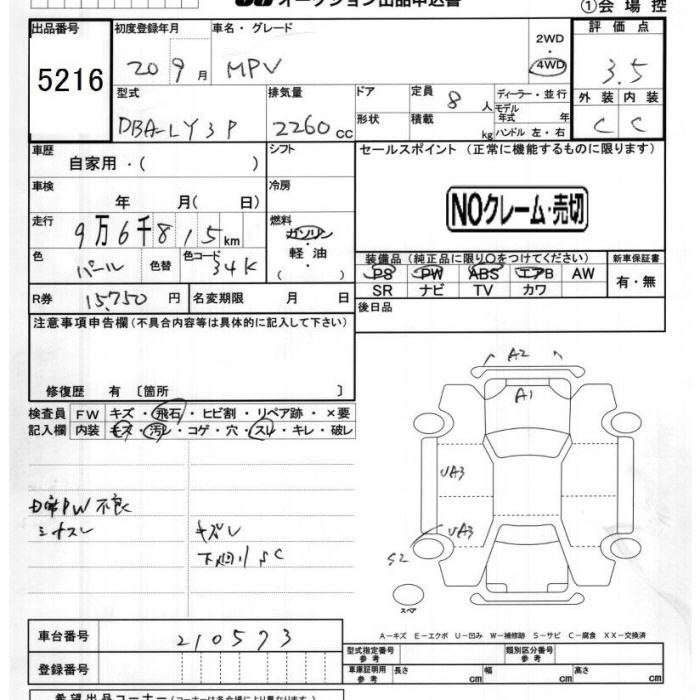 オークション出品申込書
①会場控
出品番号 初度登録年月 車名・グレード 2WD ・ 4WD 評価点
5216 20 9月 MPV 3.5
型式 排気量 ドア 定員 8人 ディーラー・並行 外装 内装
DBA-LY3P 2260cc 形状 積載 kg モデル年式 年 ハンドル 左・右 C C
車歴 シフト セールスポイント (正常に機能するものに限ります)
自家用・( )
車検 冷房
年 月( 日) NOクレーム・売切
走行 燃料
9万6千815km ガソリン・軽油
色 色替 色コード ( ) 装備品(純正品に限り○をつけてください) 新車保証書
パール 34K PS PW ABS エアB AW 有・無
SR ナビ TV カワ
R券 15,750円 名変期限 月 日 後日品
注意事項申告欄(不具合内容等は具体的に記入して下さい)
修復歴 有 〔箇所 〕
検査員 FW キズ・飛石・ヒビ割・リペア跡・×要
記入欄 内装 キズ・汚レ・コゲ・穴・スレ・キレ・破レ
A2
A1
UA3
UA3
S2
PW不良
キズレ
下廻りSC
スペア
A-キズ E-エクボ U-凹み W-補修跡 S-サビ C-腐食 XX-交換済
車台番号 210573
型式指定番号 参考 類別区分番号 参考
登録番号 車庫証明用 参考 長さ cm 幅 cm 高さ cm
希望出品コーナー(コーナーは各会場により異なります)